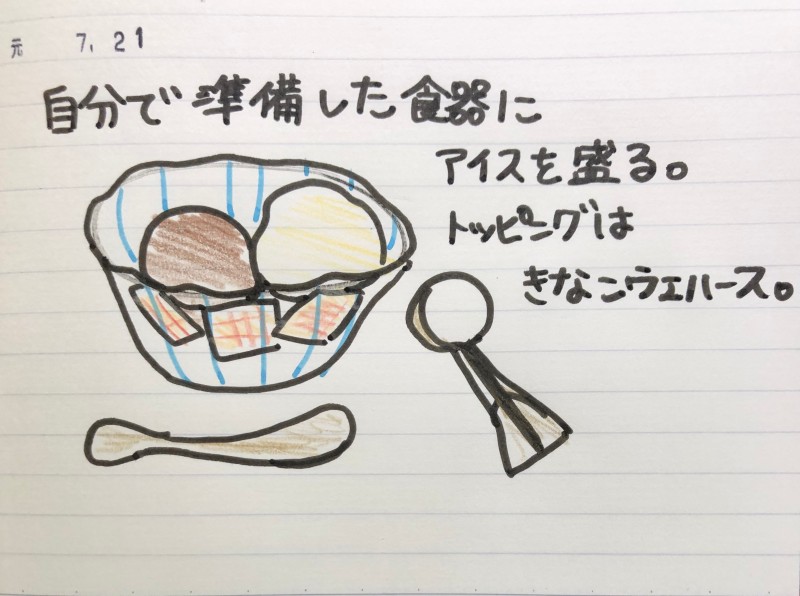 元 7. 21
自分で準備した食器に
アイスを盛る。
トッピングは
きなこウエハース。